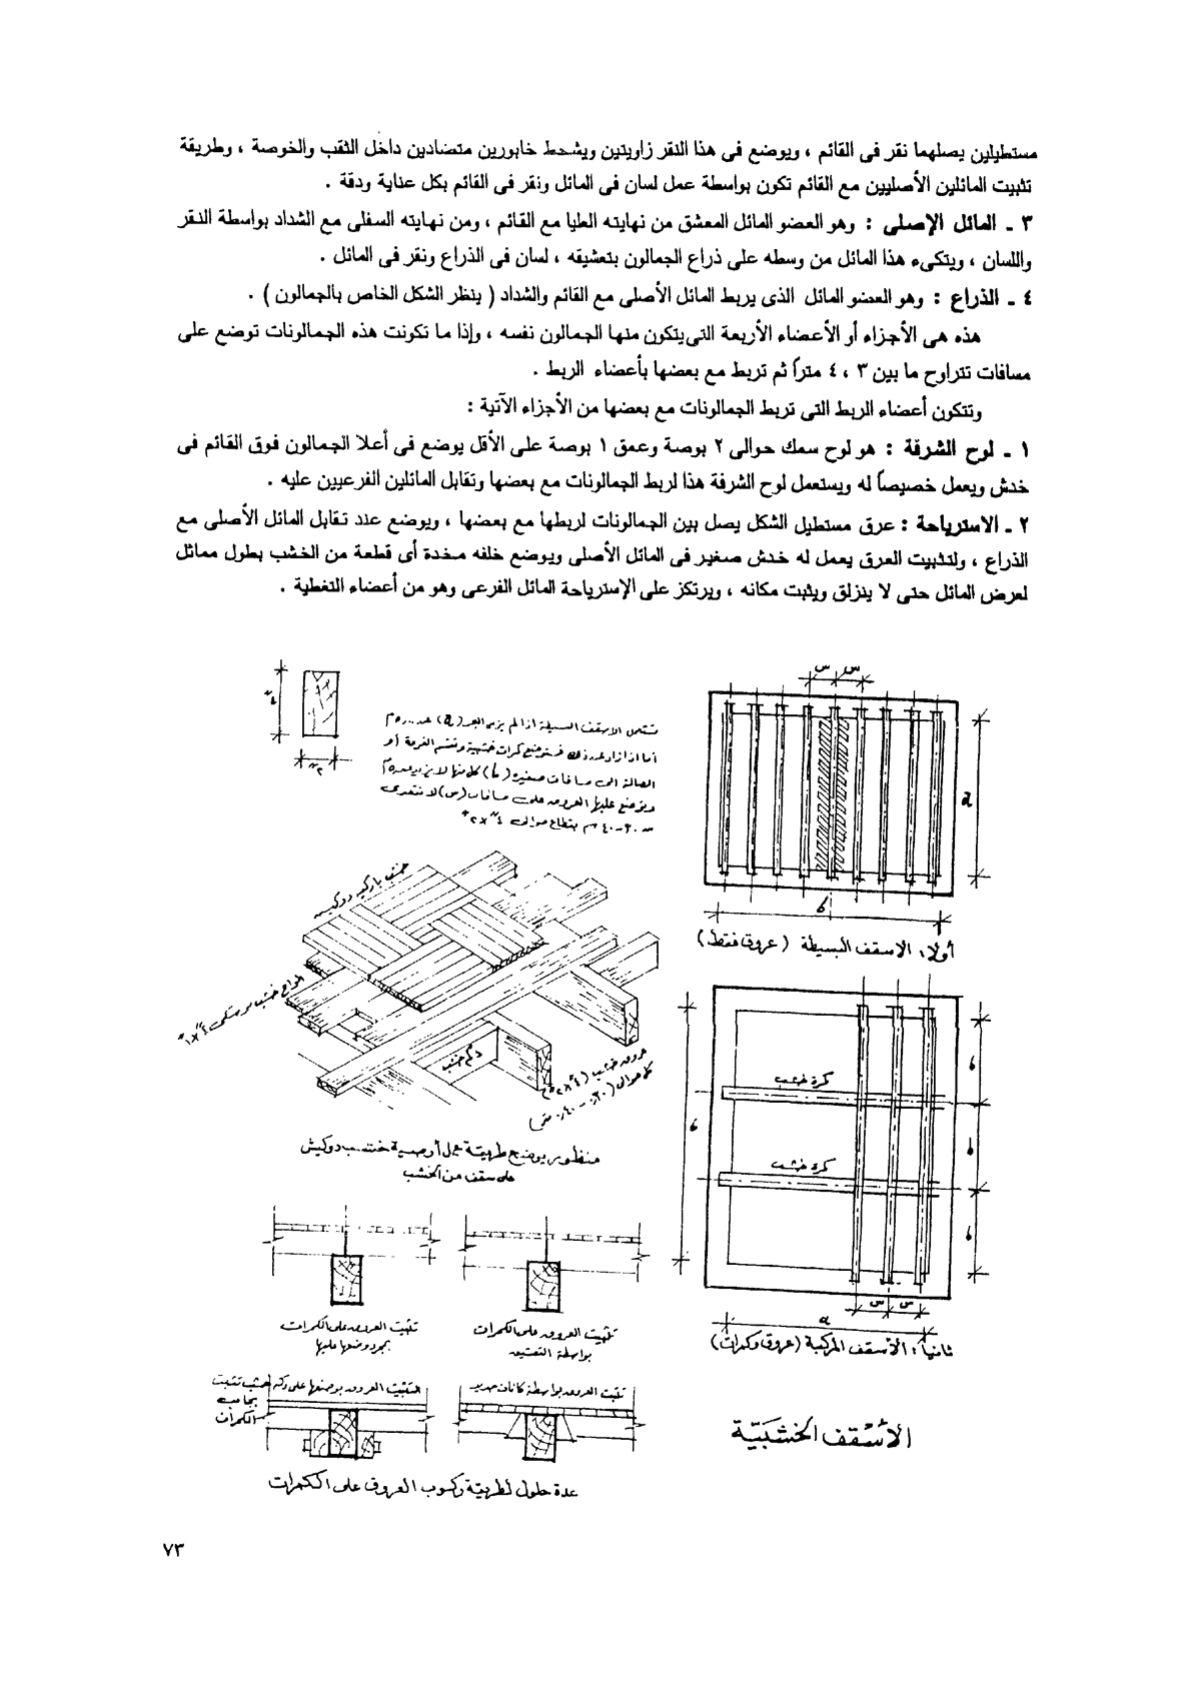 مستطيلين يصلهما نقر فى القائم ، ويوضع فى هذا النقر زاويتين ويشحط خابورين متضادين داخل الثقب والخوصة ، وطريقة
تثبيت المائلين الأصليين مع القائم تكون بواسطة عمل لسان فى المائل ونقر فى القائم بكل عناية ودقة .
٣ ـ المائل الإصلى : وهو العضو المائل المعشق من نهايته العليا مع القائم ، ومن نهايته السفلى مع الشداد بواسطة النقر
واللسان ، ويتكىء هذا المائل من وسطه على ذراع الجمالون بتعشيقه ، لسان فى الذراع ونقر فى المائل .
٤ ـ الذراع : وهو العضو المائل الذى يربط المائل الأصلى مع القائم والشداد ( ينظر الشكل الخاص بالجمالون ) .
هذه هى الأجزاء أو الأعضاء الأربعة التى يتكون منها الجمالون نفسه ، وإذا ما تكونت هذه الجمالونات توضع على
مسافات تتراوح ما بين ٣ ، ٤ متراً ثم تربط مع بعضها بأعضاء الربط .
وتتكون أعضاء الربط التى تربط الجمالونات مع بعضها من الأجزاء الآتية :
١ ـ لوح الشرفة : هو لوح سمك حوالى ٢ بوصة وعمق ١ بوصة على الأقل يوضع فى أعلا الجمالون فوق القائم فى
خدش ويعمل خصيصاً له ويستعمل لوح الشرفة هذا لربط الجمالونات مع بعضها وتقابل المائلين الفرعيين عليه .
٢ ـ الاسترياحة : عرق مستطيل الشكل يصل بين الجمالونات لربطها مع بعضها ، ويوضع عند تقابل المائل الأصلى مع
الذراع ، ولتثبيت العرق يعمل له خدش صغير فى المائل الأصلى ويوضع خلفه مخدة أى قطعة من الخشب بطول مماثل
لعرض المائل حتى لا ينزلق ويثبت مكانه ، ويرتكز على الإسترياحة المائل الفرعى وهو من أعضاء التغطية .
س س
a
b
أولا: الاسقف البسيطة (عروق فقط)
تستعمل الاسقف البسيطة اذا لم يزد البحر (a) عن
الصالة الى مسافات صغيرة (b) كل منها لا يزيد عن
ويوضع عليها العروق على مسافات (س) لا تتعدى
خشب باركيه دوكيش
دكم خشب
عروق خشب (٤"×٢")
منظور يوضح طريقة عمل أرضية خشب دوكيش
على سقف من الخشب
كمرة خشب
كمرة خشب
b
b
b
س س
a
ثانياً: الأسقف المركبة (عروق وكمرات)
تثبيت العروق على الكمرات
بواسطة التعشيق
تثبيت العروق على الكمرات
بمجرد وضعها عليها
تثبيت العروق بواسطة كانات حديد
التثبيت العروق بوضعها على دكم خشب تثبت
بجانب
الكمرات
عدة حلول لطريقة ركوب العروق على الكمرات
الأسقف الخشبية
٧٣